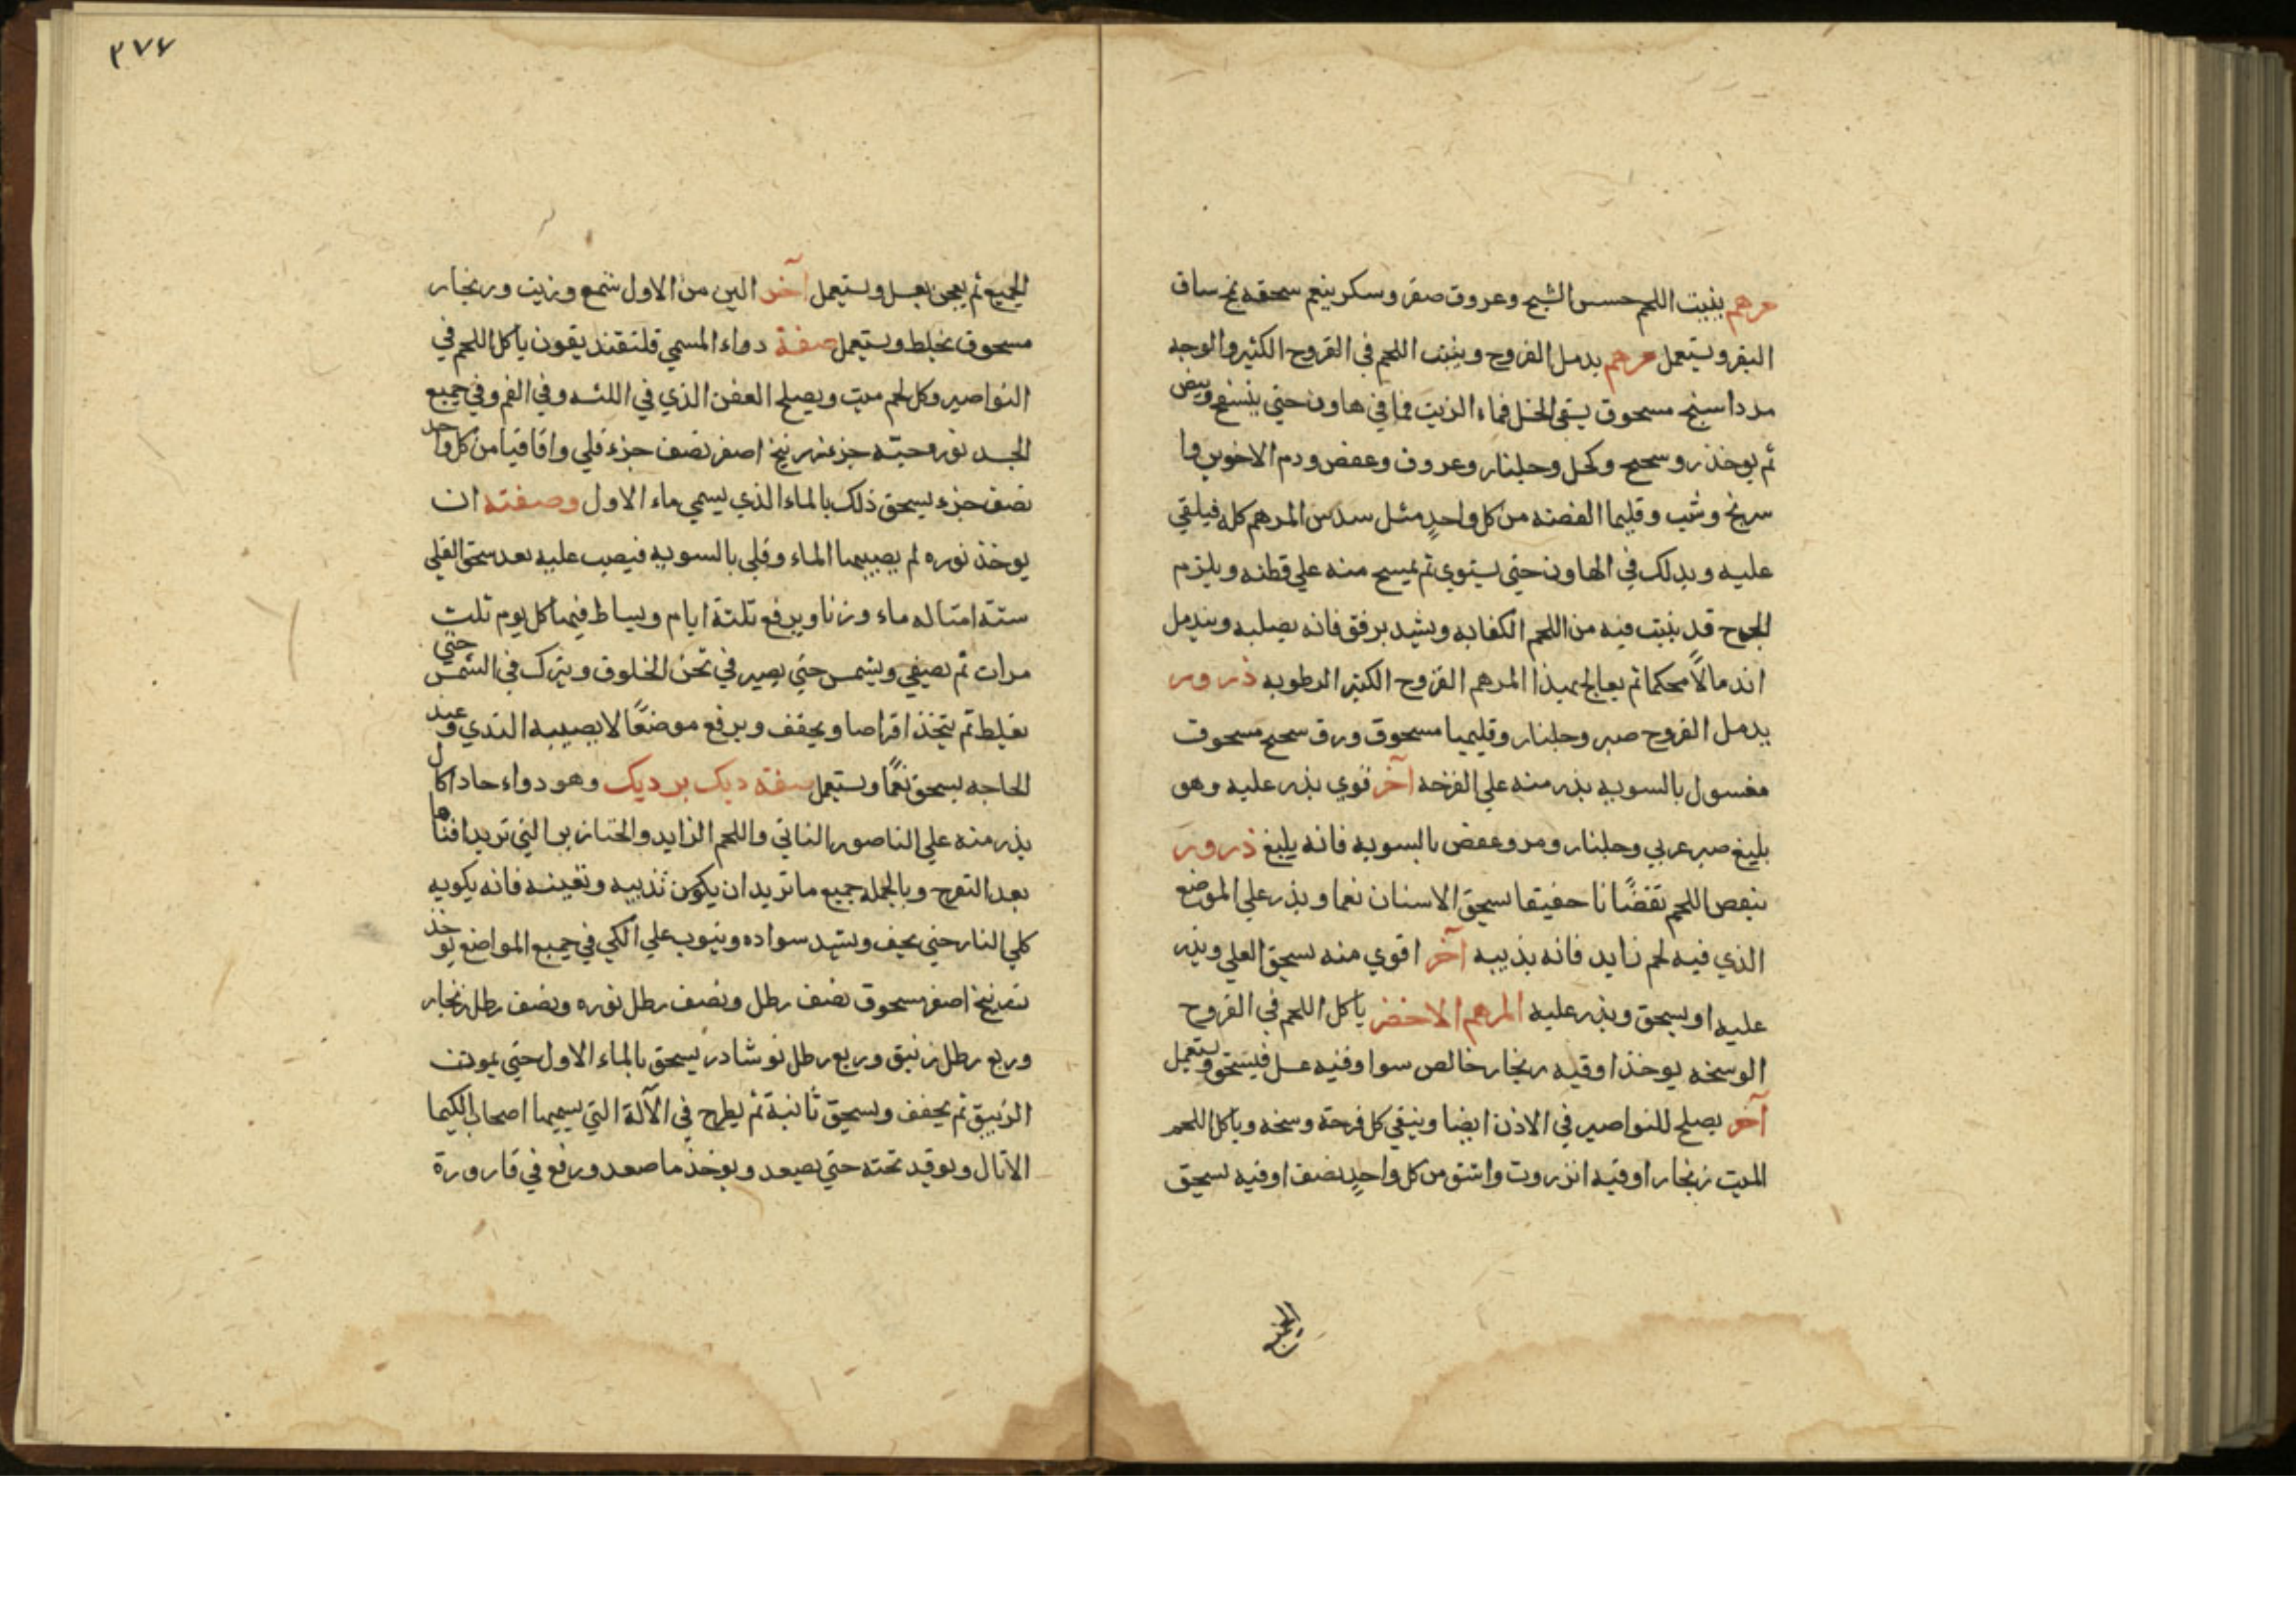 مرهم ينبت اللحم حسن الشيح وعروق صفر وسكر ينعم سحقه بمخ ساق
البقر ويستعمل مرهم يدمل القروح وينبت اللحم في القروح الكثيرة الوجه
مرداسنج مسحوق يسقى الخل فماء الزيت فما في هاون حتى ينتفخ ويبيض
ثم يوخذ روسحج وكحل وجلنار وعروق وعفص ودم الاخوين وا
سرنج وشب وقليما الفضه من كل واحدٍ مثل سدس المرهم كله فيلقي
عليه ويدلك في الهاون حتى يستوي ثم يمسح منه علي قطنه ويلزم
الجرح قد ينبت فيه من اللحم الكفايه ويشد برفق فانه يصلبه ويندمل
اندمالًا محكما ثم يعالج بهذا المرهم القروح الكثير الرطوبه ذرور
يدمل القروح صبر وجلنار وقليميا مسحوق ورق سحج مسحوق
مغسول بالسويه يذر منه علي القرحه آخر قوي يذر عليه وهو
بليغ صبر عربي وجلنار ومر وعفص بالسويه فانه يليغ ذرور
ينقص اللحم نقضًانا حفيقا يسحق الاسنان نعما ويذر علي الموضع
الذي فيه لحم زايد فانه يذيبه آخر اقوي منه يسحق القلي ويذر
عليه او يسحق ويذر عليه المرهم الاخضر ياكل اللحم في القروح
الوسخه يوخذ اوقيه زنجار خالص سوا وفنيه عسل فيسحق ويستعمل
آخر يصلح للنواصير في الاذن ايضا وينقي كل قرحة وسخه وياكل اللحم
الميت زنجار اوقيه انزروت واشق من كل واحدٍ نصف اوقيه يسحق
الجميع
٢٧٤
الجميع ثم يعجن بعسل ويستعمل آخر الين من الاول شمع وزيت وزنجار
مسحوق يخلط ويستعمل صفة دواء المسمي قلتقنديقون ياكل اللحم في
النواصير وكل لحم ميت ويصلح العفن الذي في اللثه وفي الفم وفي جميع
الجسد نوره حيّه جزء زرنيخ اصفر نصف جزء قلي واقاقيا من كل واحد
نصف جزء يسحق ذلك بالماء الذي يسمي ماء الاول وصفته ان
يوخذ نوره لم يصيبها الماء وقلي بالسويه فيصب عليه بعد سحق القلي
ستة امثاله ماء وزنا ويرفع ثلثة ايام ويساط فيها كل يوم ثلث
مرات ثم يصفي ويشمس حتي يصير في ثخن الخلوق ويترك في الشمس حتي
يغلظ ثم يتخذ اقراصا ويجفف ويرفع موضعًا لا يصيبه الندي وعند
الحاجه يسحق نعمًا ويستعمل صفة ديك برديك وهو دواء حاد اكال
يذر منه علي الناصور الناتي واللحم الزايد والخنازير التي تريد افناها
بعد التقرح وبالجمله جميع ما تريد ان يكون تذيبه وتعينه فانه يكويه
كلي النار حتي يجف ويشتد سواده وينوب علي الكي في جميع المواضع يوخذ
زرنيخ اصفر مسحوق نصف رطل ونصف رطل نوره ونصف رطل زنجار
وربع رطل زئبق وربع رطل نوشادر يسحق بالماء الاول حتي يموتن
الزيبق ثم يجفف ويسحق ثانية ثم يطرح في الآلة التي يسميها اصحاب الكيميا
الاثال ويوقد تحته حتي يصعد ويوخذ ما صعد ورفع في قارورة